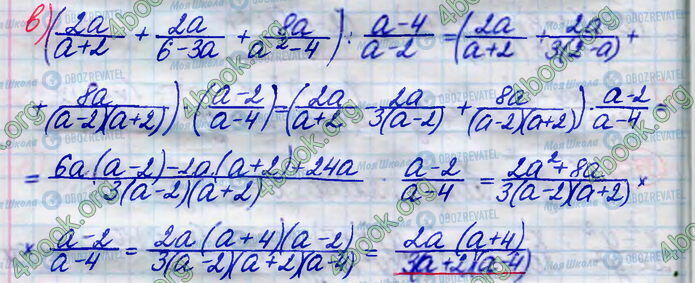 в) (2a/(a+2) + 2a/(6-3a) + 8a/(a²-4)) : (a-4)/(a-2) = (2a/(a+2) + 2a/(3(2-a)) +
+ 8a/((a-2)(a+2))) · ((a-2)/(a-4)) = (2a/(a+2) - 2a/(3(a-2)) + 8a/((a-2)(a+2))) · (a-2)/(a-4) =
= (6a(a-2)-2a(a+2)+24a)/(3(a-2)(a+2)) · (a-2)/(a-4) = (2a²+8a)/(3(a-2)(a+2)) ×
× (a-2)/(a-4) = (2a(a+4)(a-2))/(3(a-2)(a+2)(a-4)) = (2a(a+4))/(3(a+2)(a-4))
4book.org
Моя Школа
OBOZREVATEL